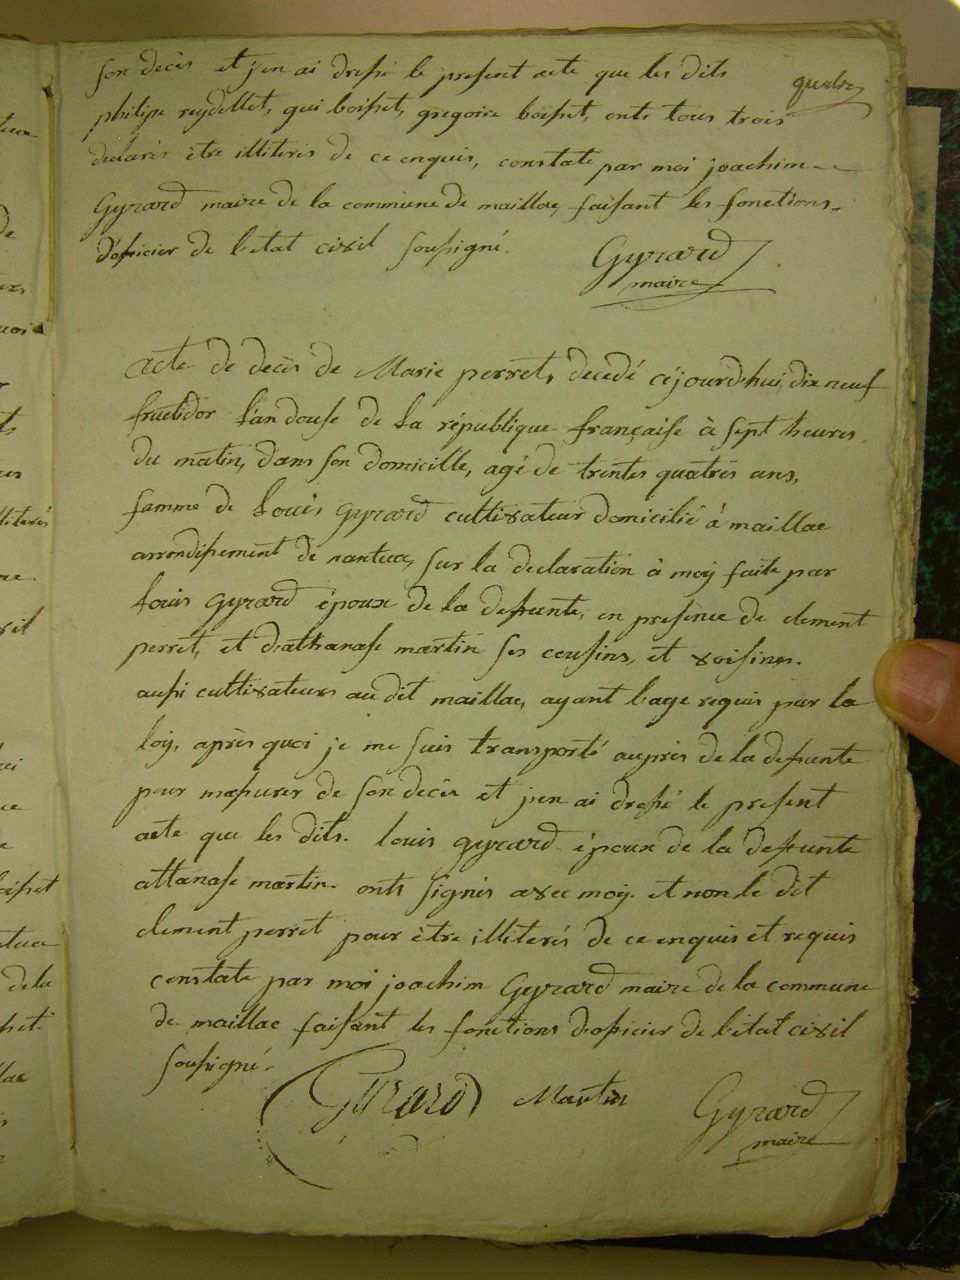 son decès et j'en ai dressé le present acte que les dits
quatre
philipe reydellet, qui boisset, gregoire boisset, onts tous trois
declarés être illiterés de ce enquis, constaté par moi joachim
Gyrard maire de la commune de maillac, faisant les fonctions
d'oficier de l'etat civil soussigné.
Gyrard
maire
acte de decès de Marie perret, decedé cejourd'hui, dix neuf
fructidor l'an douse de la république française à sept heures
du matin, dans son domicille, agé de trentes quatres ans,
famme de Louis Gyrard cultivateur domicilié à maillac
arrondissement de nantua, sur la declaration à moy faite par
louis Gyrard époux de la defunte, en presence de clement
perret, et d'athanase martin ses cousins, et voisins.
aussi cultivateurs au dit maillac, ayant l'age requis par la
loy, après quoi je me suis transporté auprès de la defunte
pour m'assurer de son decès et j'en ai dressé le present
acte que les dits. louis gyrard époux de la defunte
attanase martin. onts signés avec moy. et non le dit
clement perret pour être illiterés de ce enquis et requis
constaté par moi joachim Gyrard maire de la commune
de maillac faisant les fonctions d'oficier de l'etat civil
soussigné.
Girard Martin Gyrard
maire